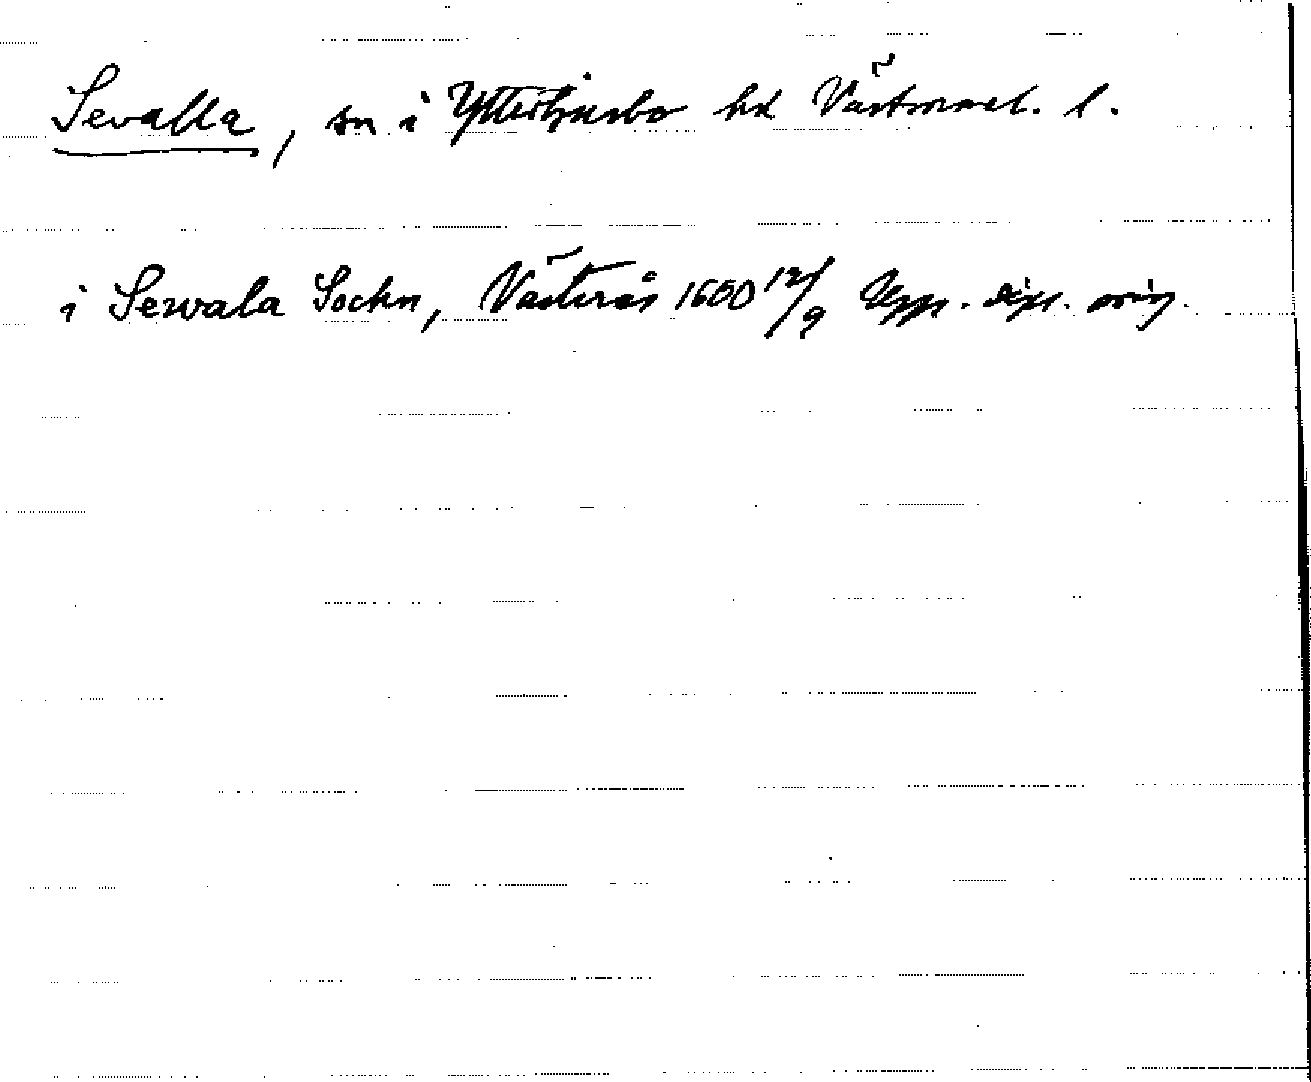 Sevalla, sn i Yttertjurbo hd Västmanl. l.
i Sewala Sockn, Västerås 1600 12/9 Upps. dipl. orig.